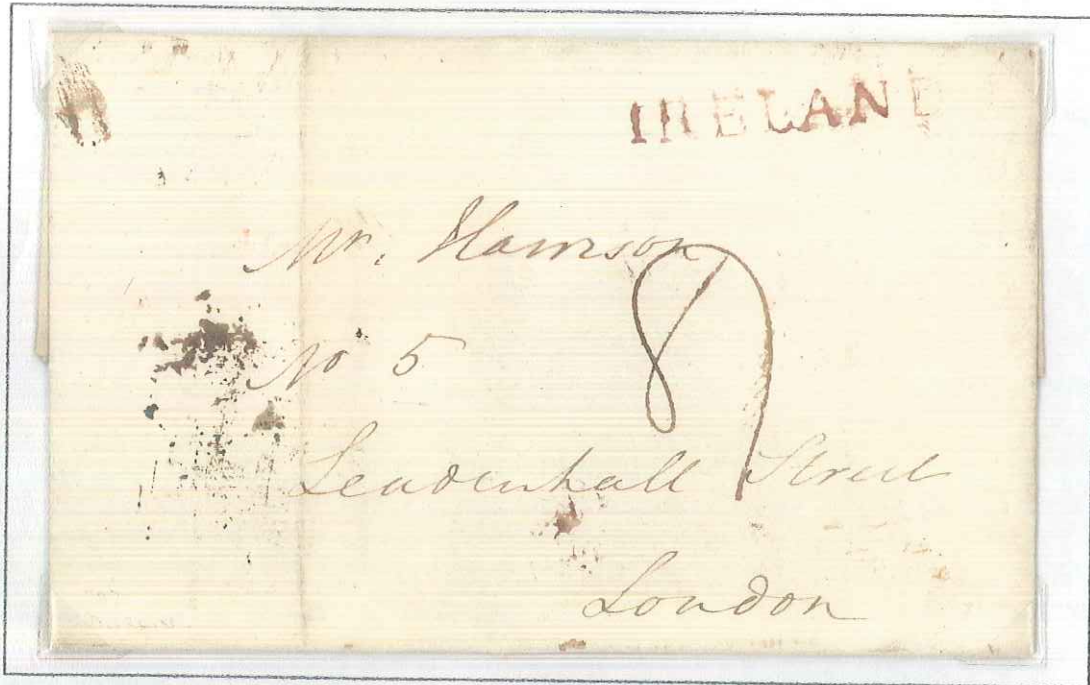 IRELAND
Mr. Harrison
No 5
8
Leadenhall Street
London